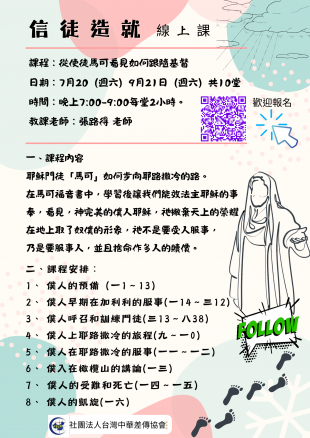 信徒造就 線上課
課程：從使徒馬可看見如何跟隨基督
日期：7月20（週六）9月21日（週六）共10堂
時間：晚上7:00-9:00每堂2小時。
歡迎報名
教課老師：張路得 老師
一、課程內容
耶穌門徒「馬可」如何步向耶路撒冷的路。
在馬可福音書中，學習後讓我們能效法主耶穌的事
奉，看見，神完美的僕人耶穌，祂撇棄天上的榮耀
在地上取了奴僕的形象，祂不是要受人服事，
乃是要服事人，並且捨命作多人的贖價。
二、課程安排：
1、 僕人的預備（一1～13）
2、 僕人早期在加利利的服事(一14～三12)
3、 僕人呼召和訓練門徒(三13～八38)
4、 僕人上耶路撒冷的旅程(九～一0)
5、 僕人在耶路撒冷的服事(一一～一二)
6、 僕人在橄欖山的講論(一三)
7、 僕人的受難和死亡(一四～一五)
8、 僕人的凱旋(一六)
FOLLOW
社團法人台灣中華差傳協會